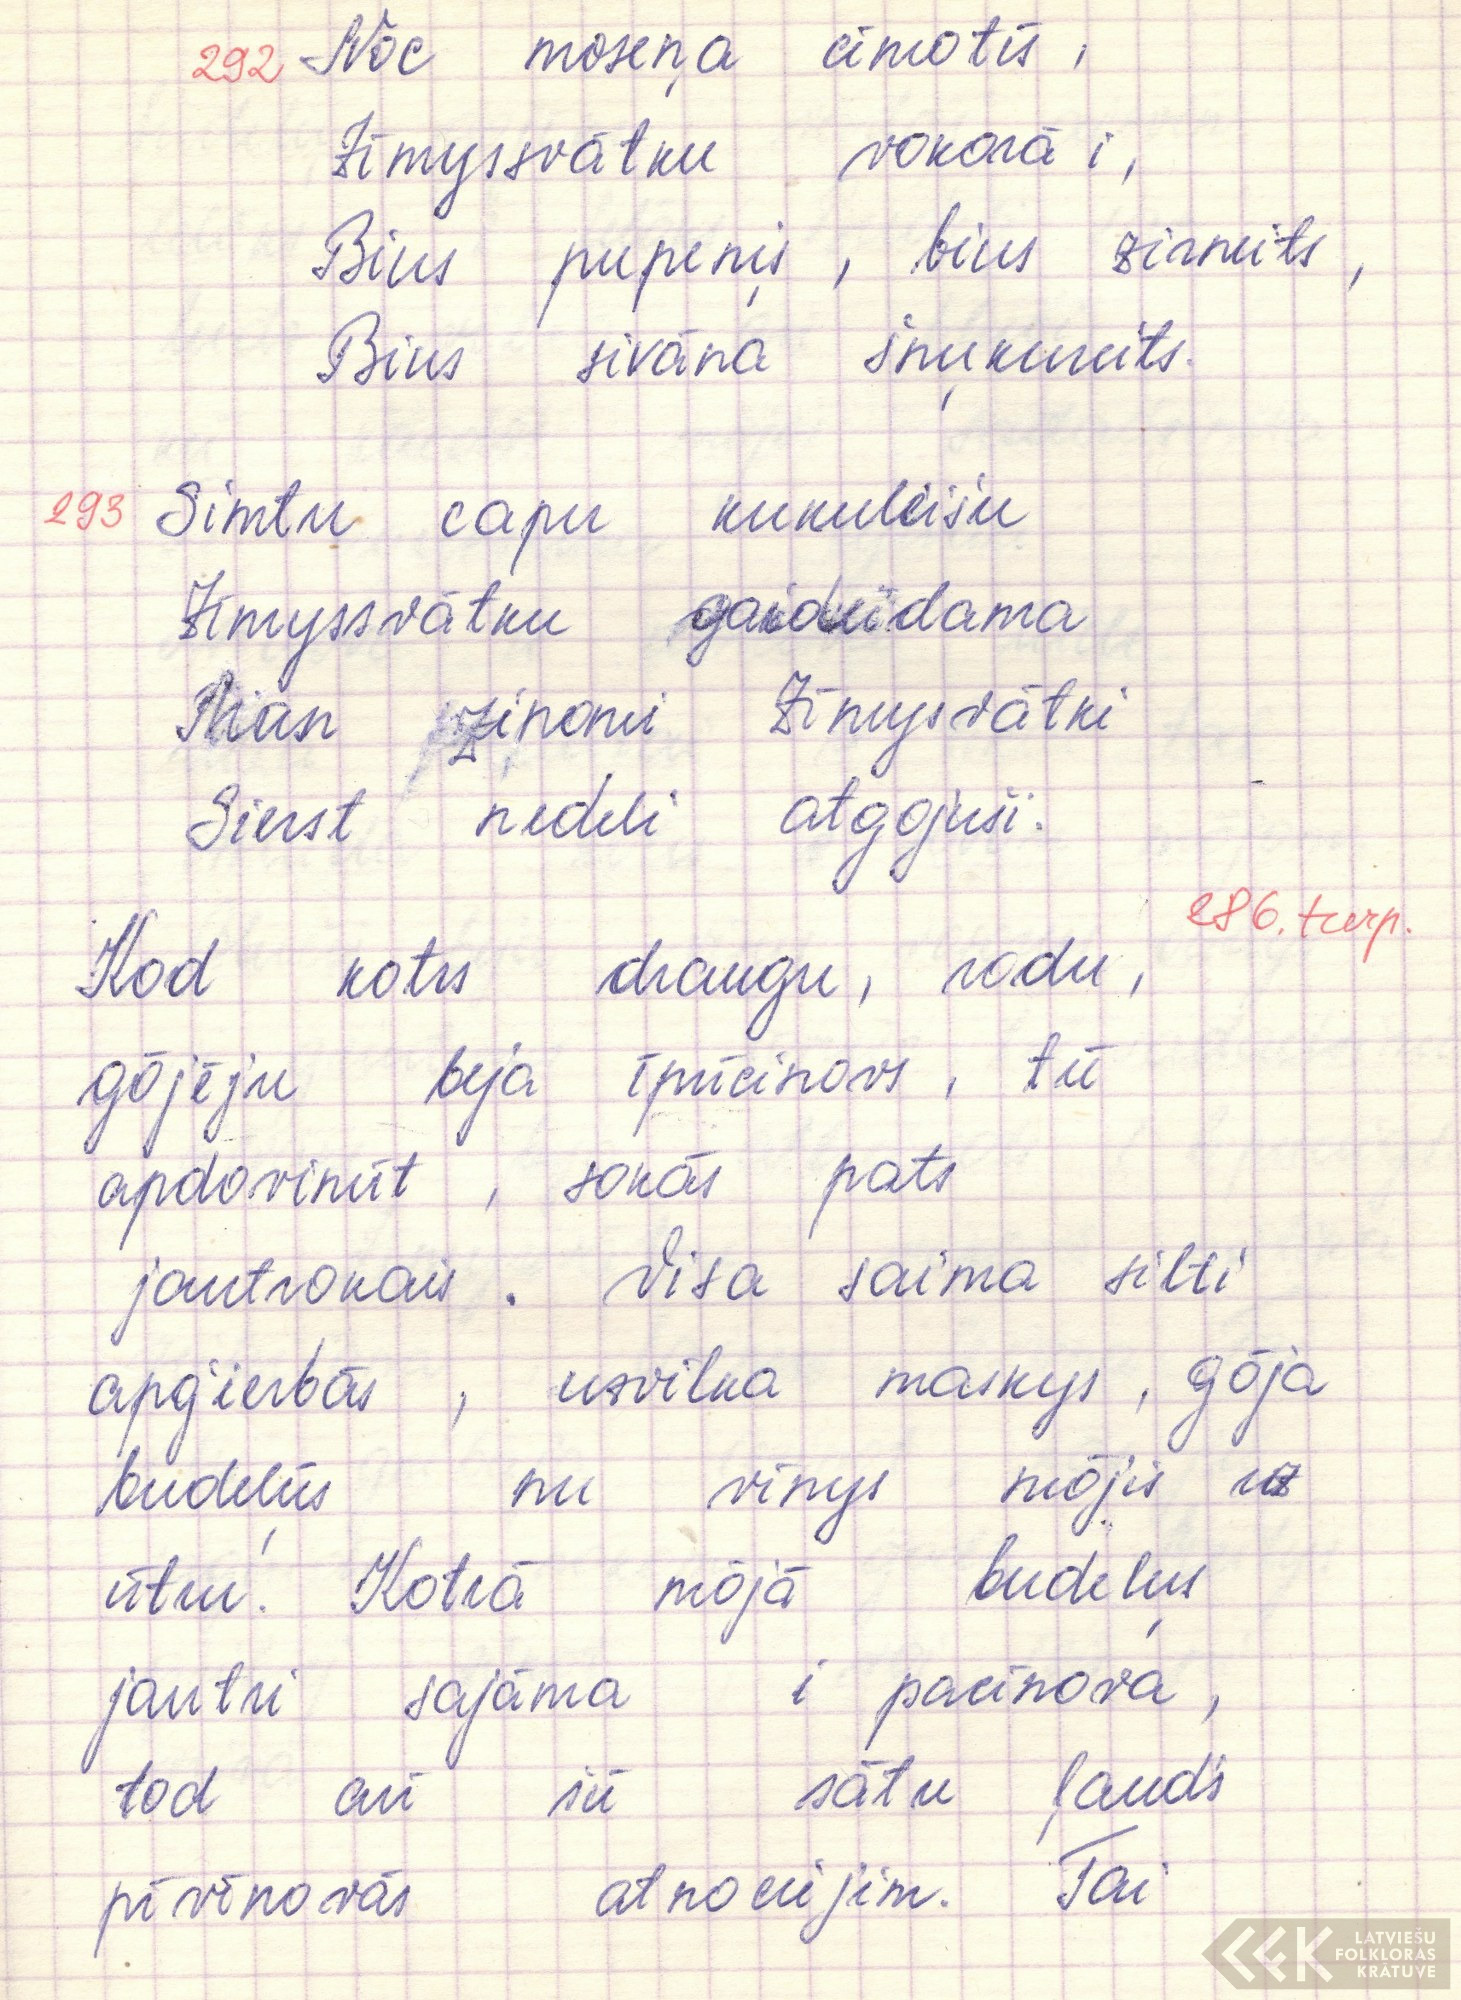 292 Nōc moseņa cīmotīs,
Zīmyssvātku vokorā i,
Bius pupeņis, bius zirneits,
Bius sivāna šņukureits.
293 Simtu capu kukuleišu
Zīmyssvātku gaideidama
Zīmysvātki
Sierst nedeli atgojuši.
286. turp.
Kod kotrs draugu, rodu,
gōjēju beja īpūcinovs, tū
apdovinūt, sokās pats
jautrokais. Visa saima silti
apģierbās, uzvilka maskys, gōja
budeļūs nu vīnys mōjis uz
ūtru. Kotrā mōjā budeļus
jautri sajāma i pacīnova,
tod arī šū sātu ļauds
pīvīnovās atnocējim. Tai
LATVIEŠU
FOLKLORAS
KRĀTUVE